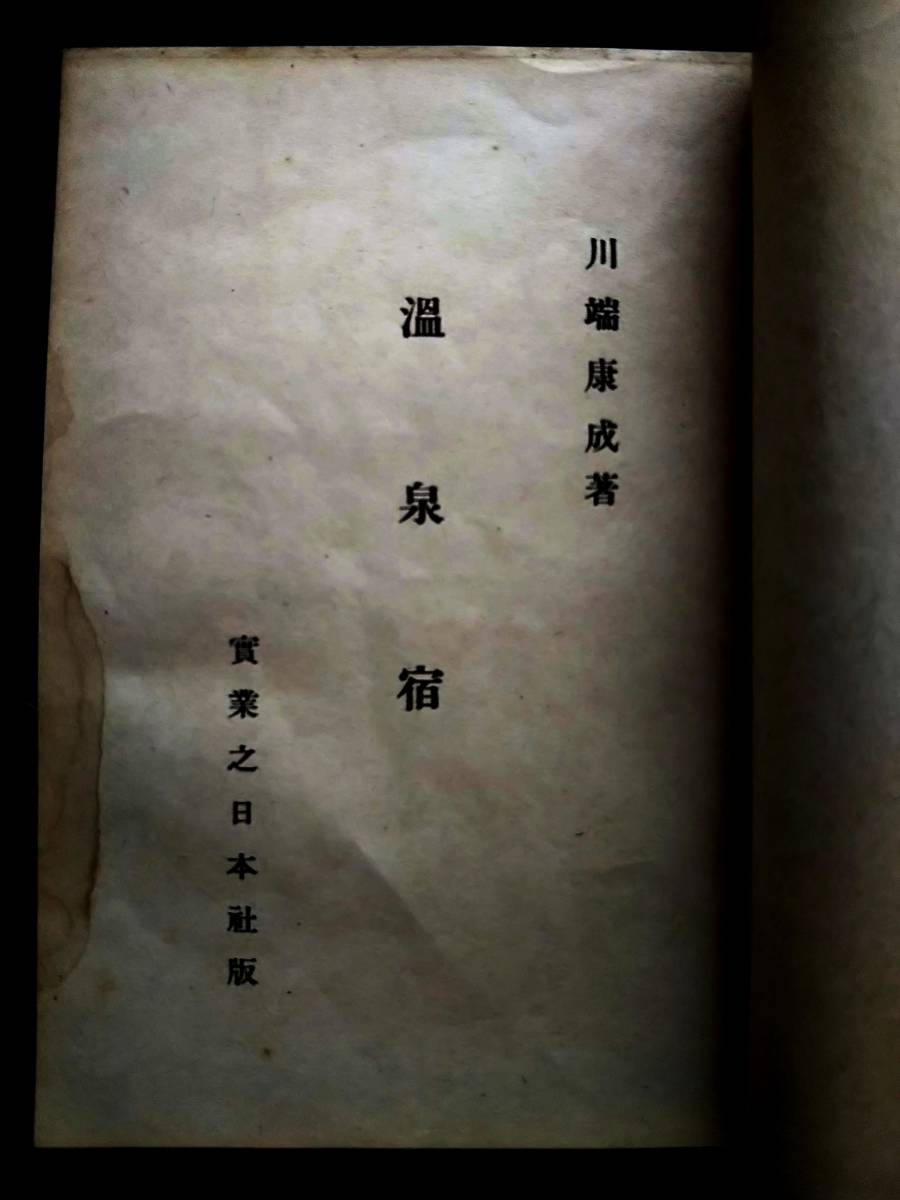 川端康成著
溫泉宿
實業之日本社版